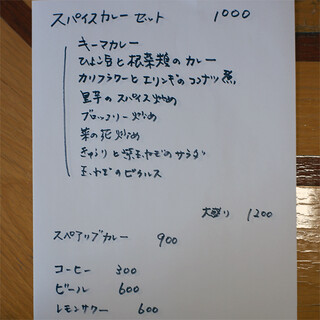 スパイスカレー セット 1000
キーマカレー
ひよこ豆と根菜類のカレー
カリフラワーとエリンギのココナッツ煮
里芋のスパイス炒め
ブロッコリー炒め
菜の花炒め
きゅうりと紫玉ねぎのサラダ
玉ねぎのピクルス
大盛り 1200
スペアリブカレー 900
コーヒー 300
ビール 600
レモンサワー 600